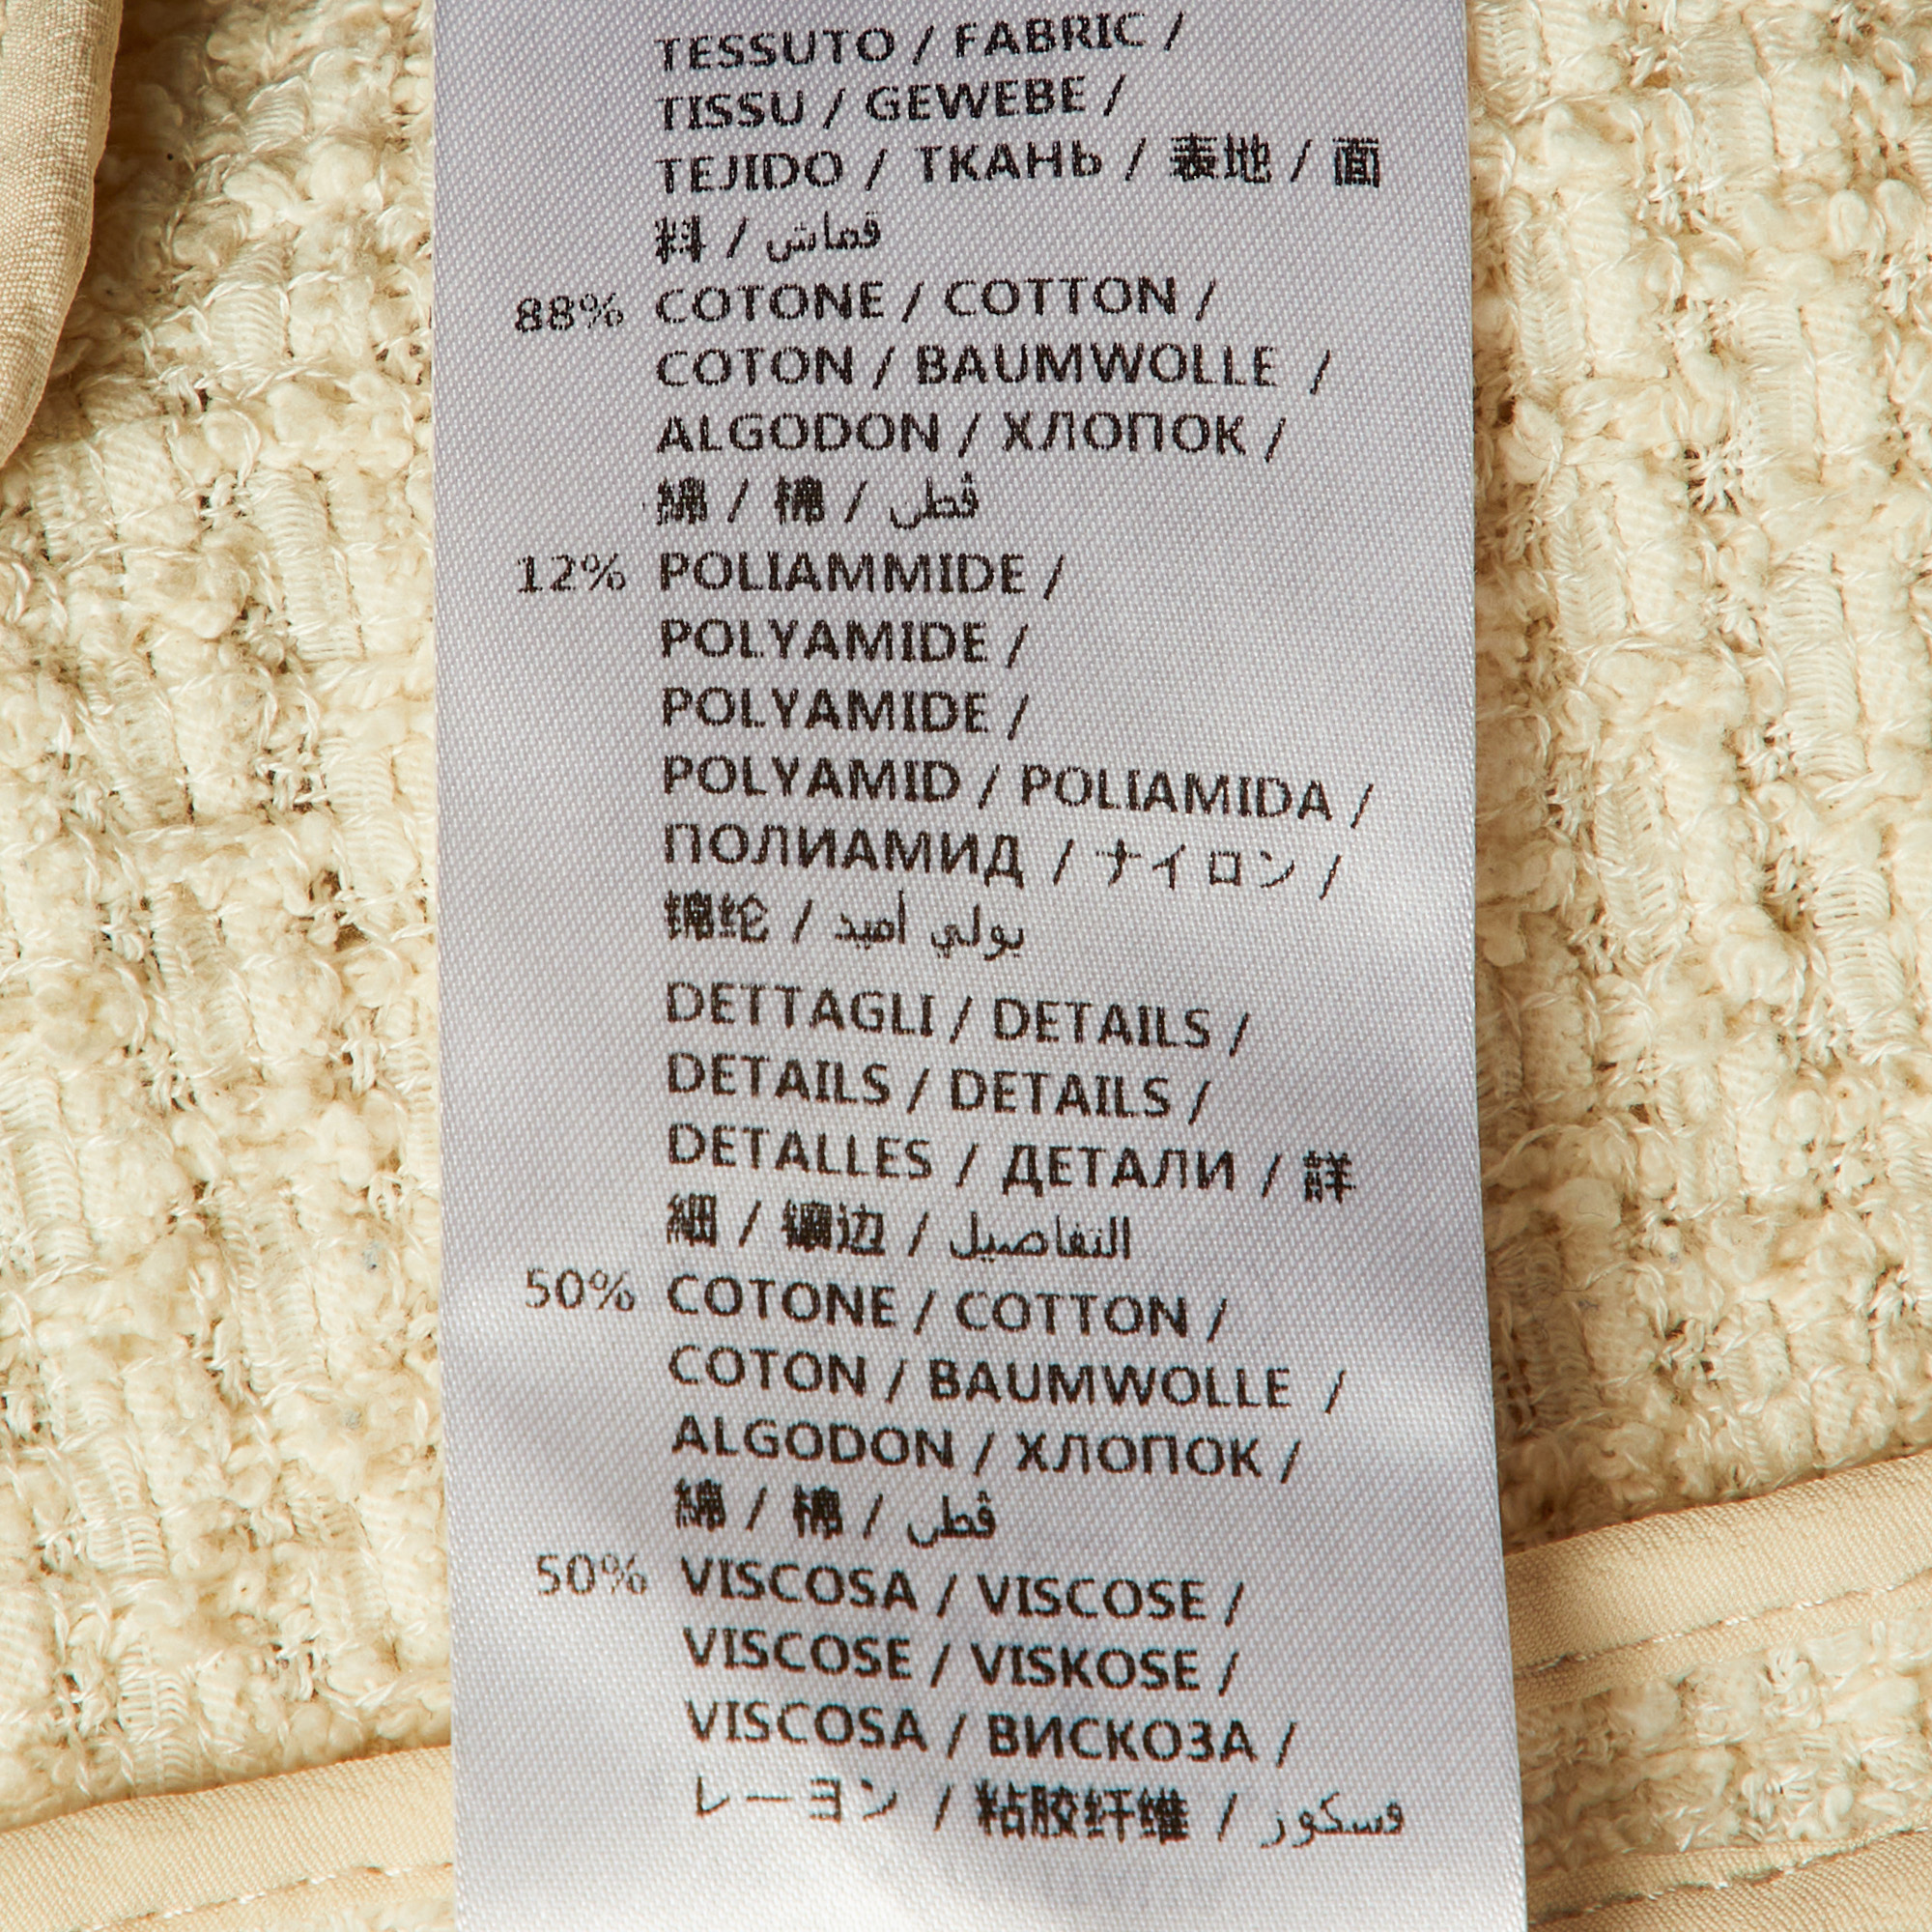 TESSUTO / FABRIC /
TISSU / GEWEBE /
TEJIDO / ТКАНЬ / 表地 / 面
料 / قماش
88% COTONE / COTTON /
COTON / BAUMWOLLE /
ALGODON / ХЛОПОК /
綿 / 棉 / قطن
12% POLIAMMIDE /
POLYAMIDE /
POLYAMIDE /
POLYAMID / POLIAMIDA /
ПОЛИАМИД / ナイロン /
锦纶 / بولي أميد
DETTAGLI / DETAILS /
DETAILS / DETAILS /
DETALLES / ДЕТАЛИ / 詳
細 / 镶边 / التفاصيل
50% COTONE / COTTON /
COTON / BAUMWOLLE /
ALGODON / ХЛОПОК /
綿 / 棉 / قطن
50% VISCOSA / VISCOSE /
VISCOSE / VISKOSE /
VISCOSA / ВИСКОЗА /
レーヨン / 粘胶纤维 / فسكوز